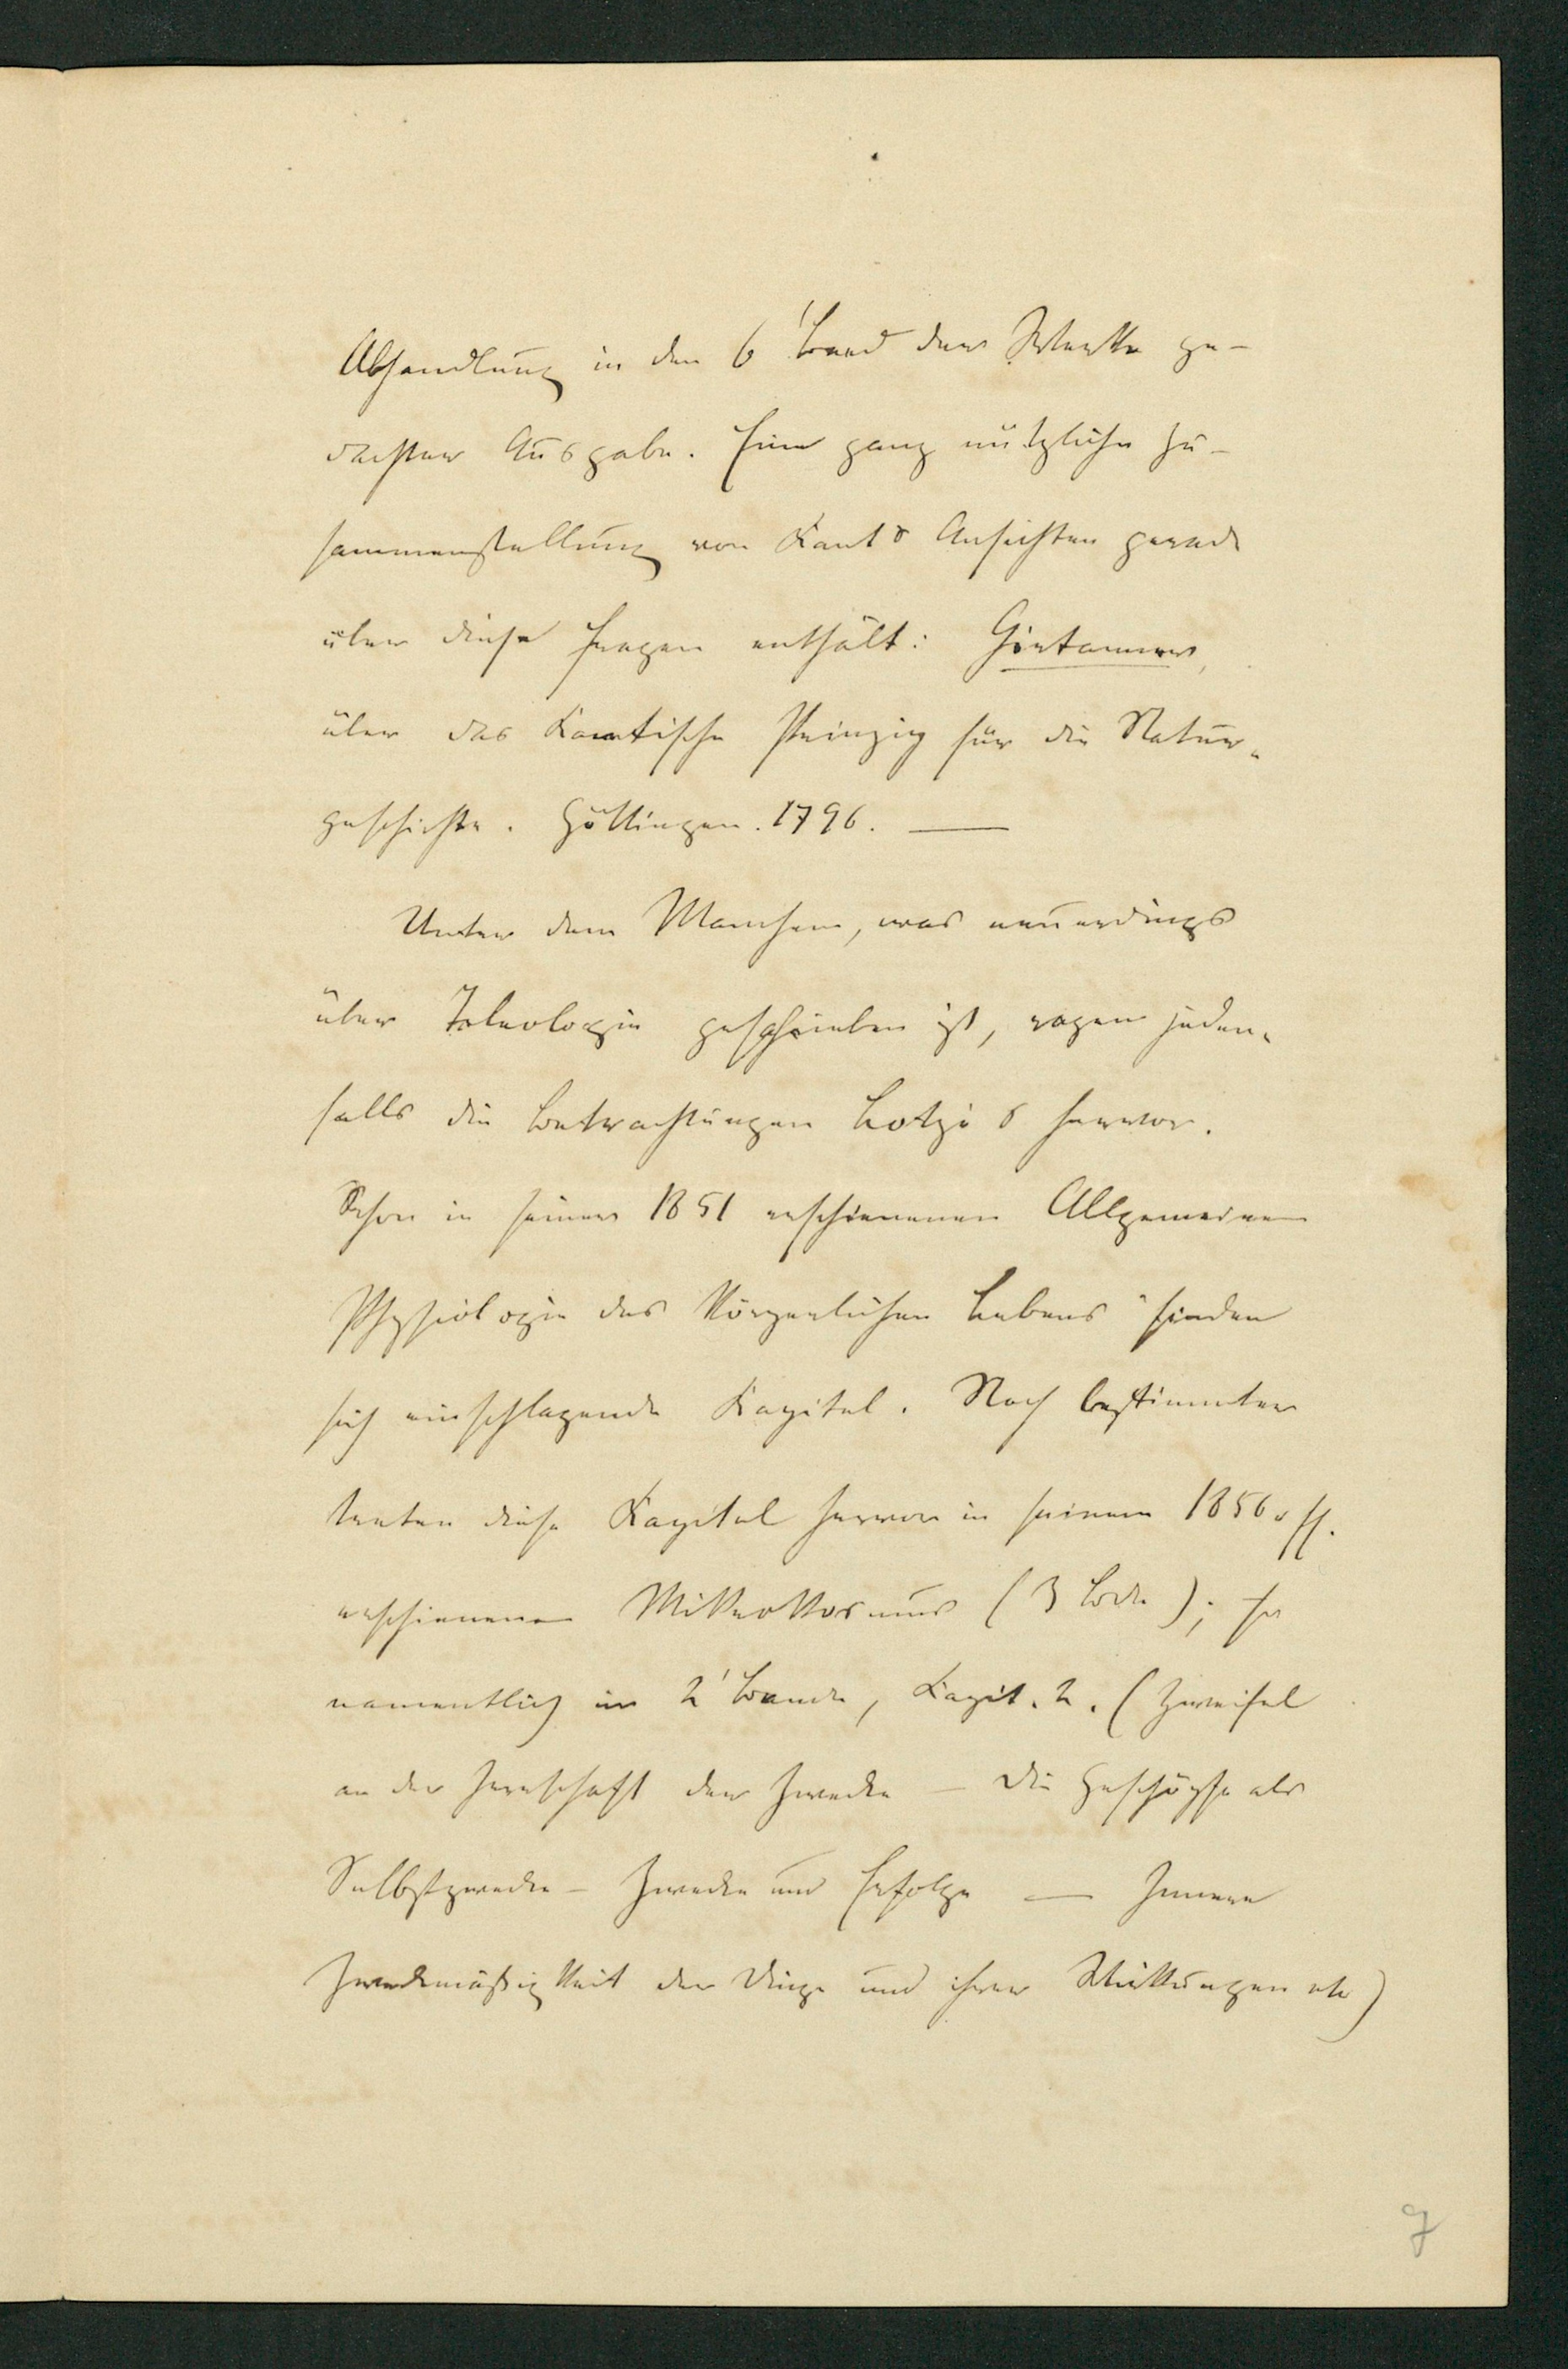 Abhandlung in den 6' Band der Werke ge-
dachter Ausgabe. Eine ganz nützliche Zu-
sammenstellung von Kant's Ansichten gerade
über diese Fragen enthält: Girtanner,
über das Kantische Prinzip für die Natur-
geschichte. Göttingen. 1796. —
Unter dem Manchem, was neuerdings
über Teleologie geschrieben ist, ragen jeden-
falls die Betrachtungen Lotze's hervor.
Schon in seiner 1851 erschienenen Allgemeinen
Physiologie des körperlichen Lebens" finden
sich einschlagende Kapitel. Noch bestimmter
treten diese Kapitel hervor in seinem 1856 ff.
erschienenen Mikrokosmus (3 Bde);
namentlich im 2' Bande, Kapit. 2. (Zweifel
an der Herrschaft der Zwecke — Die Geschöpfe als
Selbstzwecke — Zwecke und Erfolge — Innere
Zweckmäßigkeit der Dinge und ihrer Wirkungen etc)
7